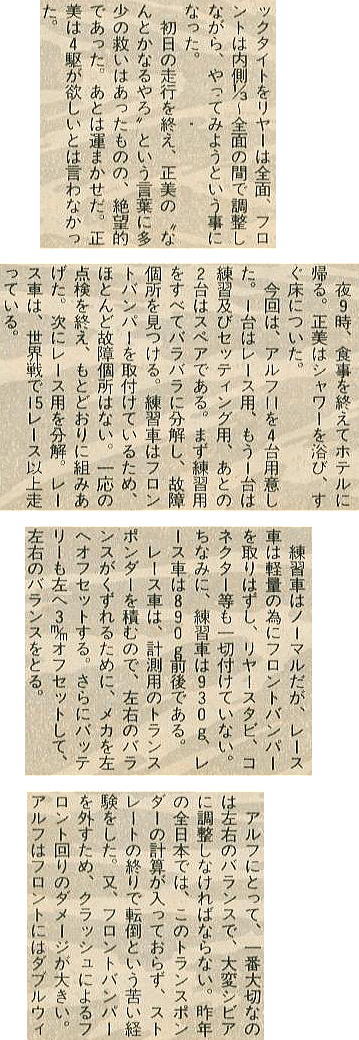 ックタイトをリヤーは全面、フロ
ントは内側1/3〜全面の間で調整し
ながら、やってみようという事に
なった。
初日の走行を終え、正美の〝な
んとかなるやろ〟という言葉に多
少の救いはあったものの、絶望的
であった。あとは運まかせだ。正
美は4駆が欲しいとは言わなかっ
た。
夜9時、食事を終えてホテルに
帰る。正美はシャワーを浴び、す
ぐ床についた。
今回は、アルフⅡを4台用意し
た。1台はレース用、もう1台は
練習及びセッティング用、あとの
2台はスペアである。まず練習用
をすべてバラバラに分解し、故障
個所を見つける。練習車はフロン
トバンパーを取付けているため、
ほとんど故障個所はない。一応の
点検を終え、もとどおりに組みあ
げた。次にレース用を分解。レー
ス車は、世界戦で15レース以上走
っている。
練習車はノーマルだが、レース
車は軽量の為にフロントバンパー
を取りはずし、リヤースタビ、コ
ネクター等も一切付けていない。
ちなみに、練習車は930g、レ
ース車は890g前後である。
レース車は、計測用のトランス
ポンダーを積むので、左右のバラ
ンスがくずれるために、メカを左
へオフセットする。さらにバッテ
リーも左へ3㎜オフセットして、
左右のバランスをとる。
アルフにとって、一番大切なの
は左右のバランスで、大変シビア
に調整しなければならない。昨年
の全日本では、このトランスポン
ダーの計算が入っておらず、スト
レートの終りで転倒という苦い経
験をした。又、フロントバンパー
を外すため、クラッシュによるフ
ロント回りのダメージが大きい。
アルフはフロントにはダブルウィ